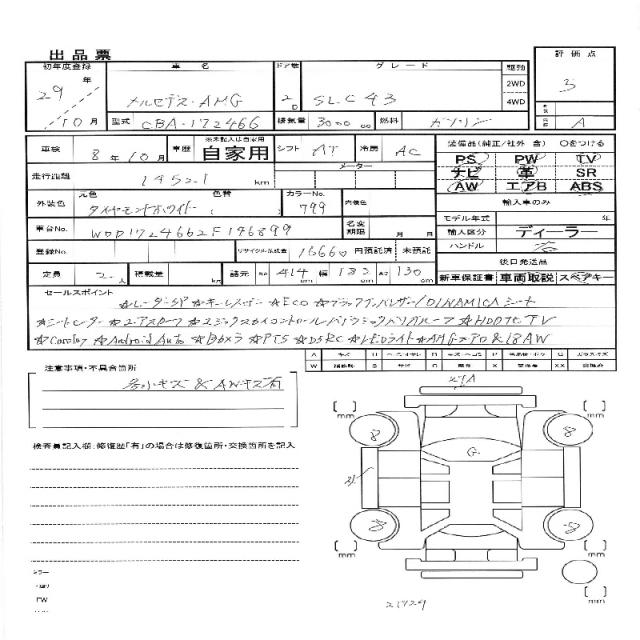 出品票
初年度登録 車名 ドア数 グレード 駆動 評価点
29年 メルセデス・AMG 2D SLC43 2WD 3
10月 4WD
型式 CBA-172466 排気量 3000 燃料 ガソリン A
車検 8年10月 車歴 ※未記入は自家用 自家用 シフト AT 冷房 AC 装備品(純正/社外 含) ○をつける
PS PW TV
走行距離 14521 km メーター ナビ 革 SR
AW エアB ABS
外装色 元色 色替 カラーNo. 内装色 輸入車のみ
ダイヤモンドホワイト 799 モデル年式 年
車台No. WDD1724662F146899 名変期限 月 日 輸入区分 ディーラー
登録No. リサイクル預託金 16660 円預託済 未預託 ハンドル 右
後日発送品
定員 2人 積載量 kg 諸元 長さ 414 幅 182 高さ 130 cm 新車保証書 車両取説 スペアキー
セールスポイント
☆レーダーSP ☆キーレスゴー ☆ECO ☆ブラックアッシュレザー/DINAMICAシート
☆シートヒーター ☆エアスカーフ ☆マジックスカイコントロールパノラミックバリオルーフ ☆HDDナビTV
☆CarPlay ☆Android Auto ☆Bカメラ ☆PTS ☆DSRC ☆LEDライト ☆AMGエアロ&18AW
注意事項・不具合箇所
多小キズ & AWキズ有
検査員記入欄:修復歴「有」の場合は修復箇所・交換箇所を記入
mm mm
8 8
G
8 8
mm mm
mm
ミラー
PW
21724